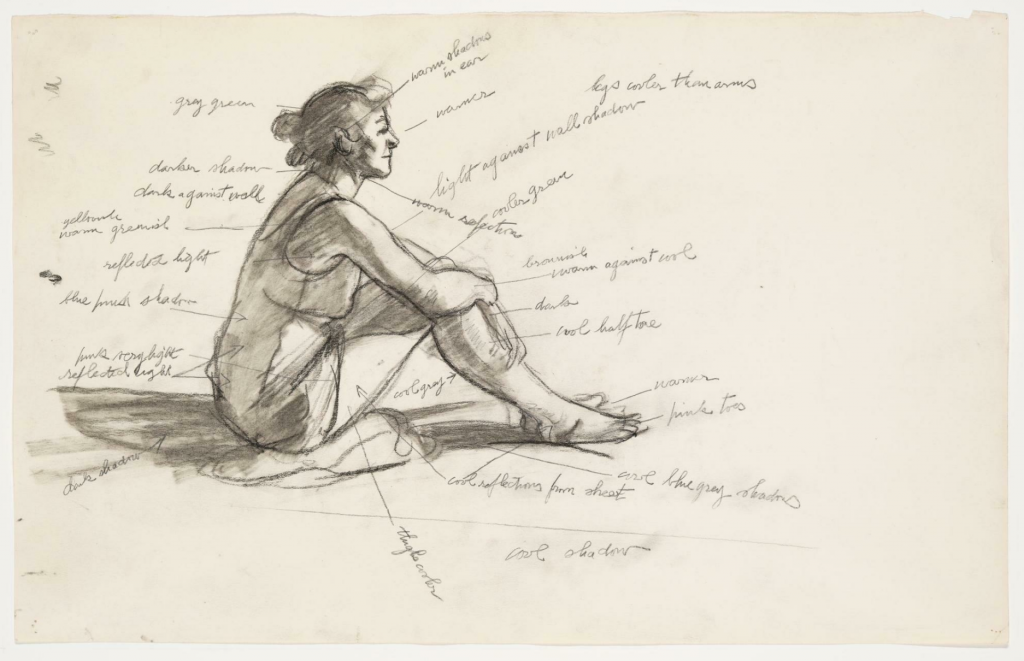 warm shadows
in ear
legs cooler than arms
grey green
warmer
light against wall shadow
darker shadow
cooler green
dark against wall
warm reflections
yellowish
warm greenish
reflected light
brownish
warm against cool
blue pink shadow
dark
cool half tone
pink very light
reflected light
cool grey
warmer
pink toes
dark shadow
cool reflections from sheet
cool blue grey shadows
thighs cooler
cool shadow